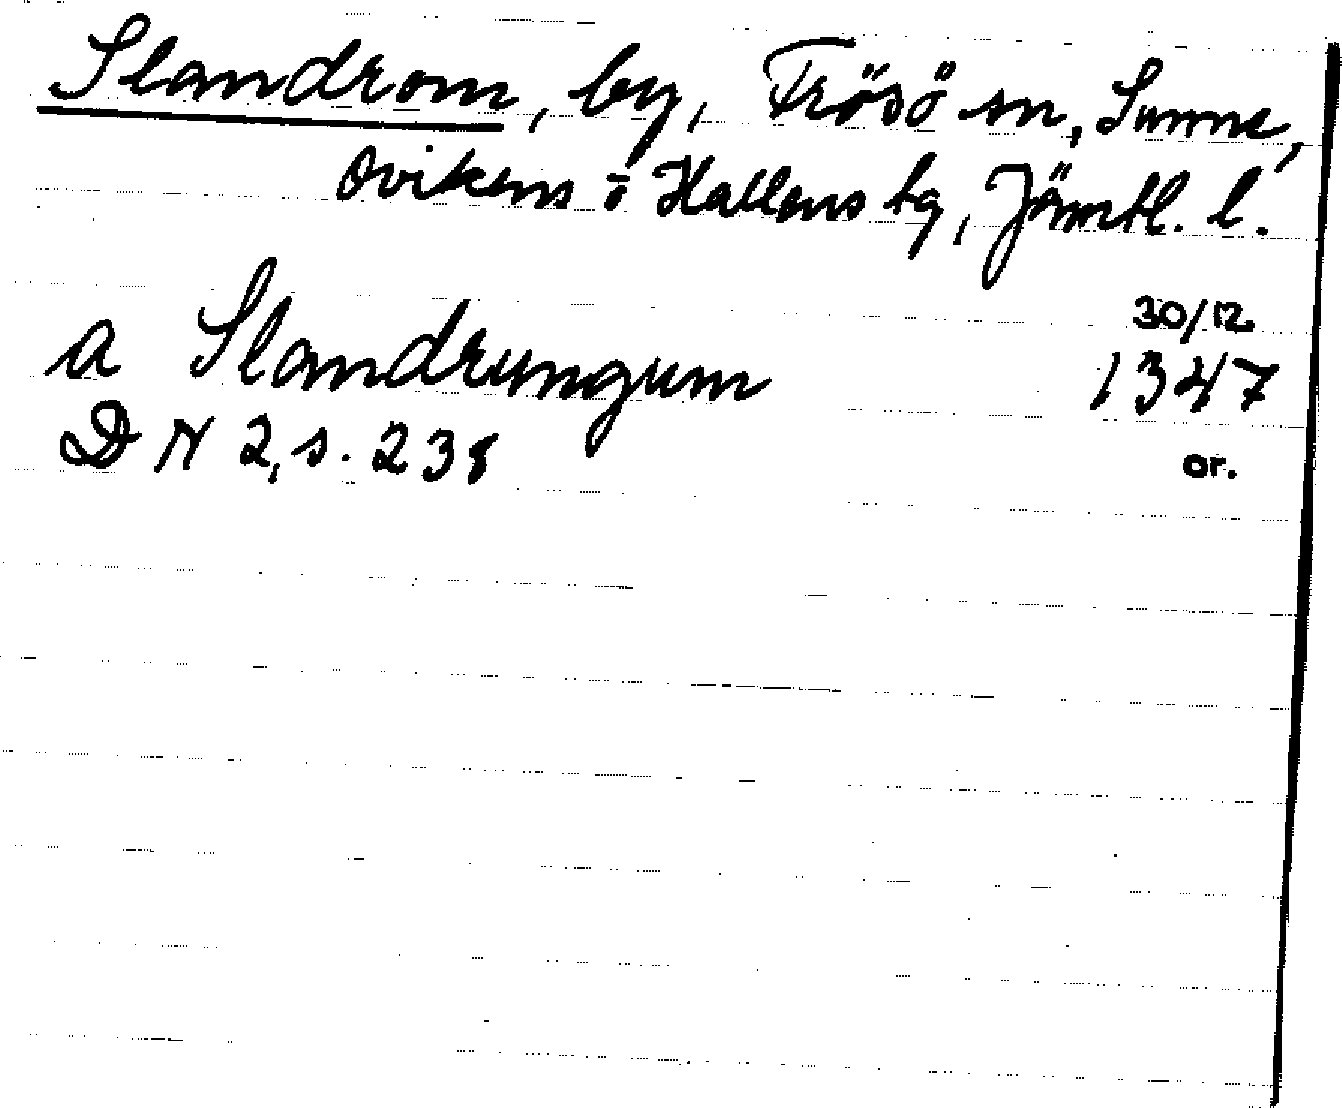 Slandrom, by, Frösö sn, Sunne,
Ovikens o Hallens tg, Jämtl. l.
30/12.
a Slandrungum 1347
DN 2, s. 238 or.